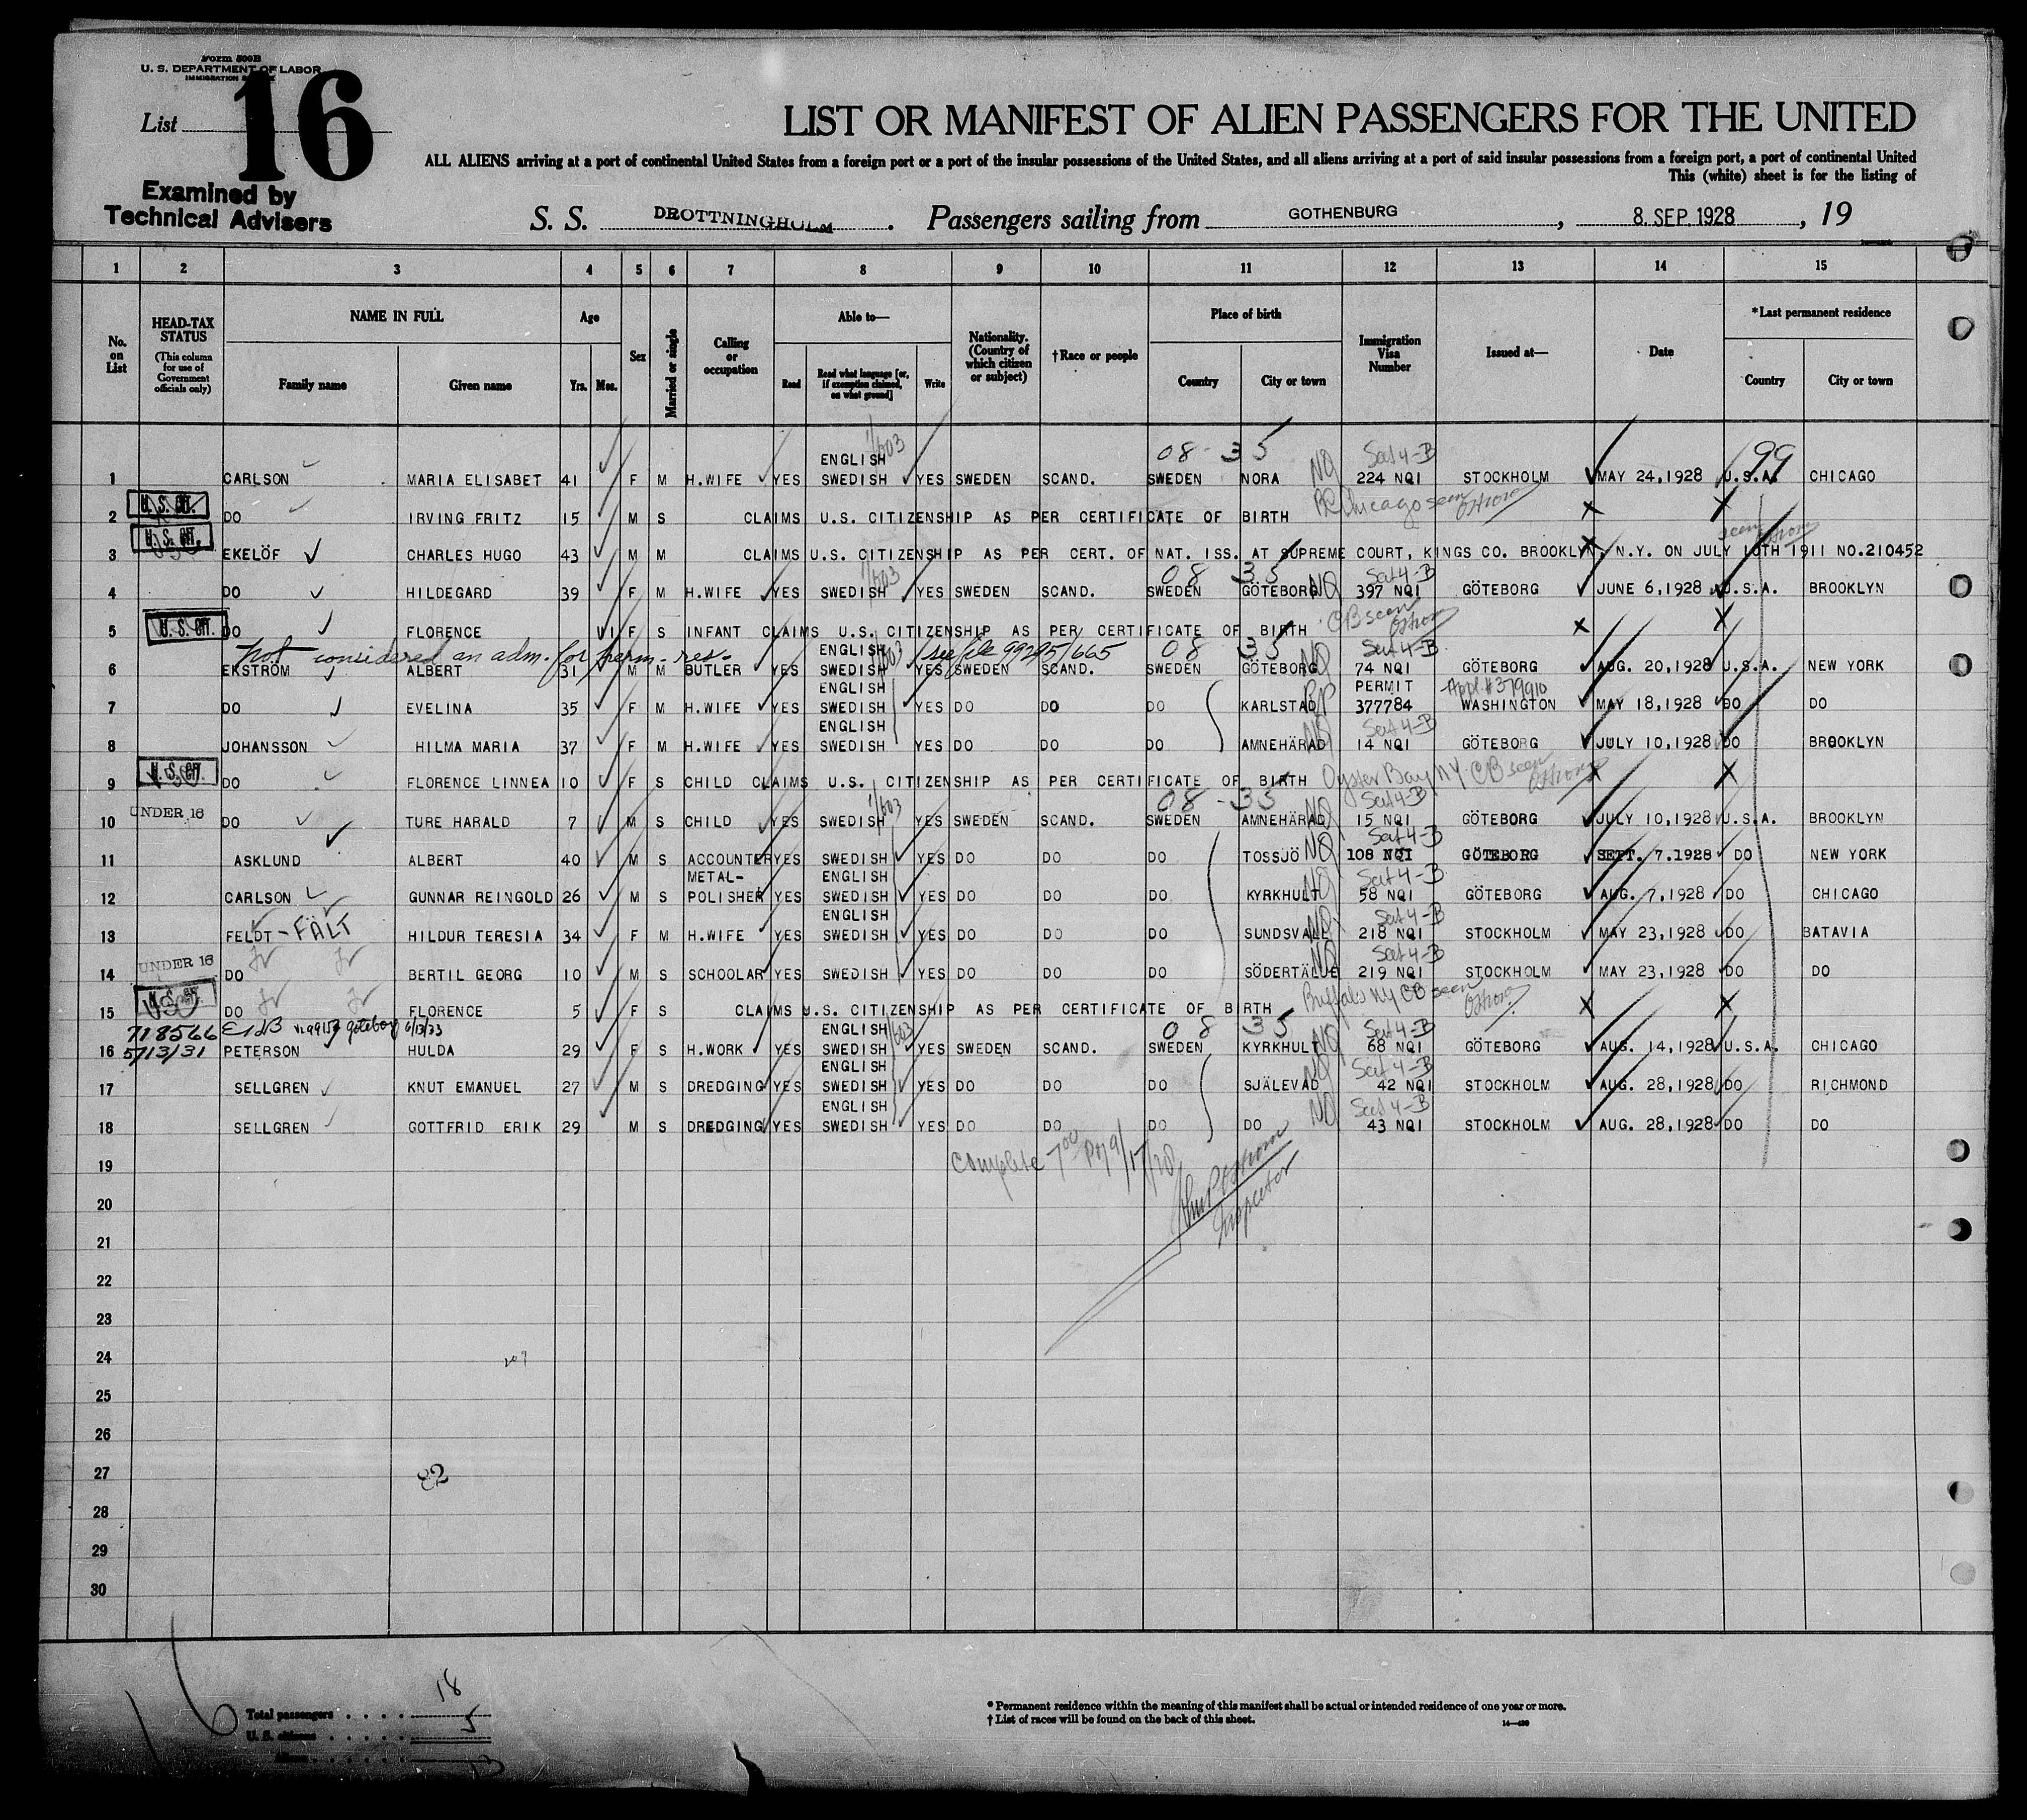 Form 500B
U. S. DEPARTMENT OF LABOR
IMMIGRATION
List 16
LIST OR MANIFEST OF ALIEN PASSENGERS FOR THE UNITED
ALL ALIENS arriving at a port of continental United States from a foreign port or a port of the insular possessions of the United States, and all aliens arriving at a port of said insular possessions from a foreign port, a port of continental United
This (white) sheet is for the listing of
Examined by
Technical Advisers
S. S. DROTTNINGHOLM. Passengers sailing from GOTHENBURG, 8. SEP. 1928, 19
1 2 3 4 5 6 7 8 9 10 11 12 13 14 15
No. on List
HEAD-TAX STATUS
(This column for use of Government officials only)
NAME IN FULL
Family name Given name
Age
Yrs. Mos.
Sex
Married or single
Calling or occupation
Able to—
Read Read what language [or, if exemption claimed, on what ground] Write
Nationality. (Country of which citizen or subject)
†Race or people
Place of birth
Country City or town
Immigration Visa Number
Issued at—
Date
*Last permanent residence
Country City or town
1/603 08-35 Sect 4-B 99
ENGLISH
1 CARLSON MARIA ELISABET 41 F M H.WIFE YES SWEDISH YES SWEDEN SCAND. SWEDEN NORA NQ 224 NQI STOCKHOLM MAY 24,1928 U.S.A. CHICAGO
U. S. CIT. Chicago seen
2 DO IRVING FRITZ 15 M S CLAIMS U.S. CITIZENSHIP AS PER CERTIFICATE OF BIRTH X X
U. S. CIT. seen
3 EKELÖF CHARLES HUGO 43 M M CLAIMS U.S. CITIZENSHIP AS PER CERT. OF NAT. ISS. AT SUPREME COURT, KINGS CO. BROOKLYN, N.Y. ON JULY 10TH 1911 NO.210452
1/603 08 35 Sect 4-B
4 DO HILDEGARD 39 F M H.WIFE YES SWEDISH YES SWEDEN SCAND. SWEDEN GÖTEBORG NQ 397 NQI GÖTEBORG JUNE 6,1928 U.S.A. BROOKLYN
U. S. CIT. CB seen
5 DO FLORENCE VI F S INFANT CLAIMS U.S. CITIZENSHIP AS PER CERTIFICATE OF BIRTH X X
Not considered an adm. for perm. res. see file 99295/665 08 35 Sect 4-B
ENGLISH
6 EKSTRÖM ALBERT 31 M M BUTLER YES SWEDISH YES SWEDEN SCAND. SWEDEN GÖTEBORG NQ 74 NQI GÖTEBORG AUG. 20,1928 U.S.A. NEW YORK
ENGLISH PERMIT Appl.# 379910
7 DO EVELINA 35 F M H.WIFE YES SWEDISH YES DO DO DO KARLSTAD RP 377784 WASHINGTON MAY 18,1928 DO DO
ENGLISH Sect 4-B
8 JOHANSSON HILMA MARIA 37 F M H.WIFE YES SWEDISH YES DO DO DO AMNEHÄRAD NQ 14 NQI GÖTEBORG JULY 10,1928 DO BROOKLYN
U. S. CIT. Oyster Bay NY. CB seen
9 DO FLORENCE LINNEA 10 F S CHILD CLAIMS U.S. CITIZENSHIP AS PER CERTIFICATE OF BIRTH X X
UNDER 16 1/603 08-35 Sect 4-B
10 DO TURE HARALD 7 M S CHILD YES SWEDISH YES SWEDEN SCAND. SWEDEN AMNEHÄRAD NQ 15 NQI GÖTEBORG JULY 10,1928 U.S.A. BROOKLYN
Sect 4-B
11 ASKLUND ALBERT 40 M S ACCOUNTER YES SWEDISH YES DO DO DO TOSSJÖ NQ 108 NQI GÖTEBORG SEPT. 7.1928 DO NEW YORK
METAL- ENGLISH Sect 4-B
12 CARLSON GUNNAR REINGOLD 26 M S POLISHER YES SWEDISH YES DO DO DO KYRKHULT NQ 58 NQI GÖTEBORG AUG. 7,1928 DO CHICAGO
ENGLISH Sect 4-B
13 FELDT - FÄLT HILDUR TERESIA 34 F M H.WIFE YES SWEDISH YES DO DO DO SUNDSVALL NQ 218 NQI STOCKHOLM MAY 23,1928 DO BATAVIA
UNDER 16 Sect 4-B
14 DO BERTIL GEORG 10 M S SCHOOLAR YES SWEDISH YES DO DO DO SÖDERTÄLJE NQ 219 NQI STOCKHOLM MAY 23,1928 DO DO
U. S. CIT. Buffalo NY CB seen
15 DO FLORENCE 5 F S CLAIMS U.S. CITIZENSHIP AS PER CERTIFICATE OF BIRTH X X
718566 goteborg 6/13/33 ENGLISH 08 35 Sect 4-B
16 5/13/31 PETERSON HULDA 29 F S H.WORK YES SWEDISH YES SWEDEN SCAND. SWEDEN KYRKHULT NQ 68 NQI GÖTEBORG AUG. 14,1928 U.S.A. CHICAGO
ENGLISH Sect 4-B
17 SELLGREN KNUT EMANUEL 27 M S DREDGING YES SWEDISH YES DO DO DO SJÄLEVAD NQ 42 NQI STOCKHOLM AUG. 28,1928 DO RICHMOND
ENGLISH Sect 4-B
18 SELLGREN GOTTFRID ERIK 29 M S DREDGING YES SWEDISH YES DO DO DO DO NQ 43 NQI STOCKHOLM AUG. 28,1928 DO DO
19 Complete 7 00 9/17/28
20 Inspector
21
22
23
24
25
26
27 82
28
29
30
16
Total passengers 18
U. S. citizens 5
Aliens 13
* Permanent residence within the meaning of this manifest shall be actual or intended residence of one year or more.
† List of races will be found on the back of this sheet.